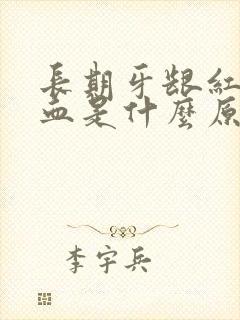 長期牙龈紅
血是什麼原
李宇兵